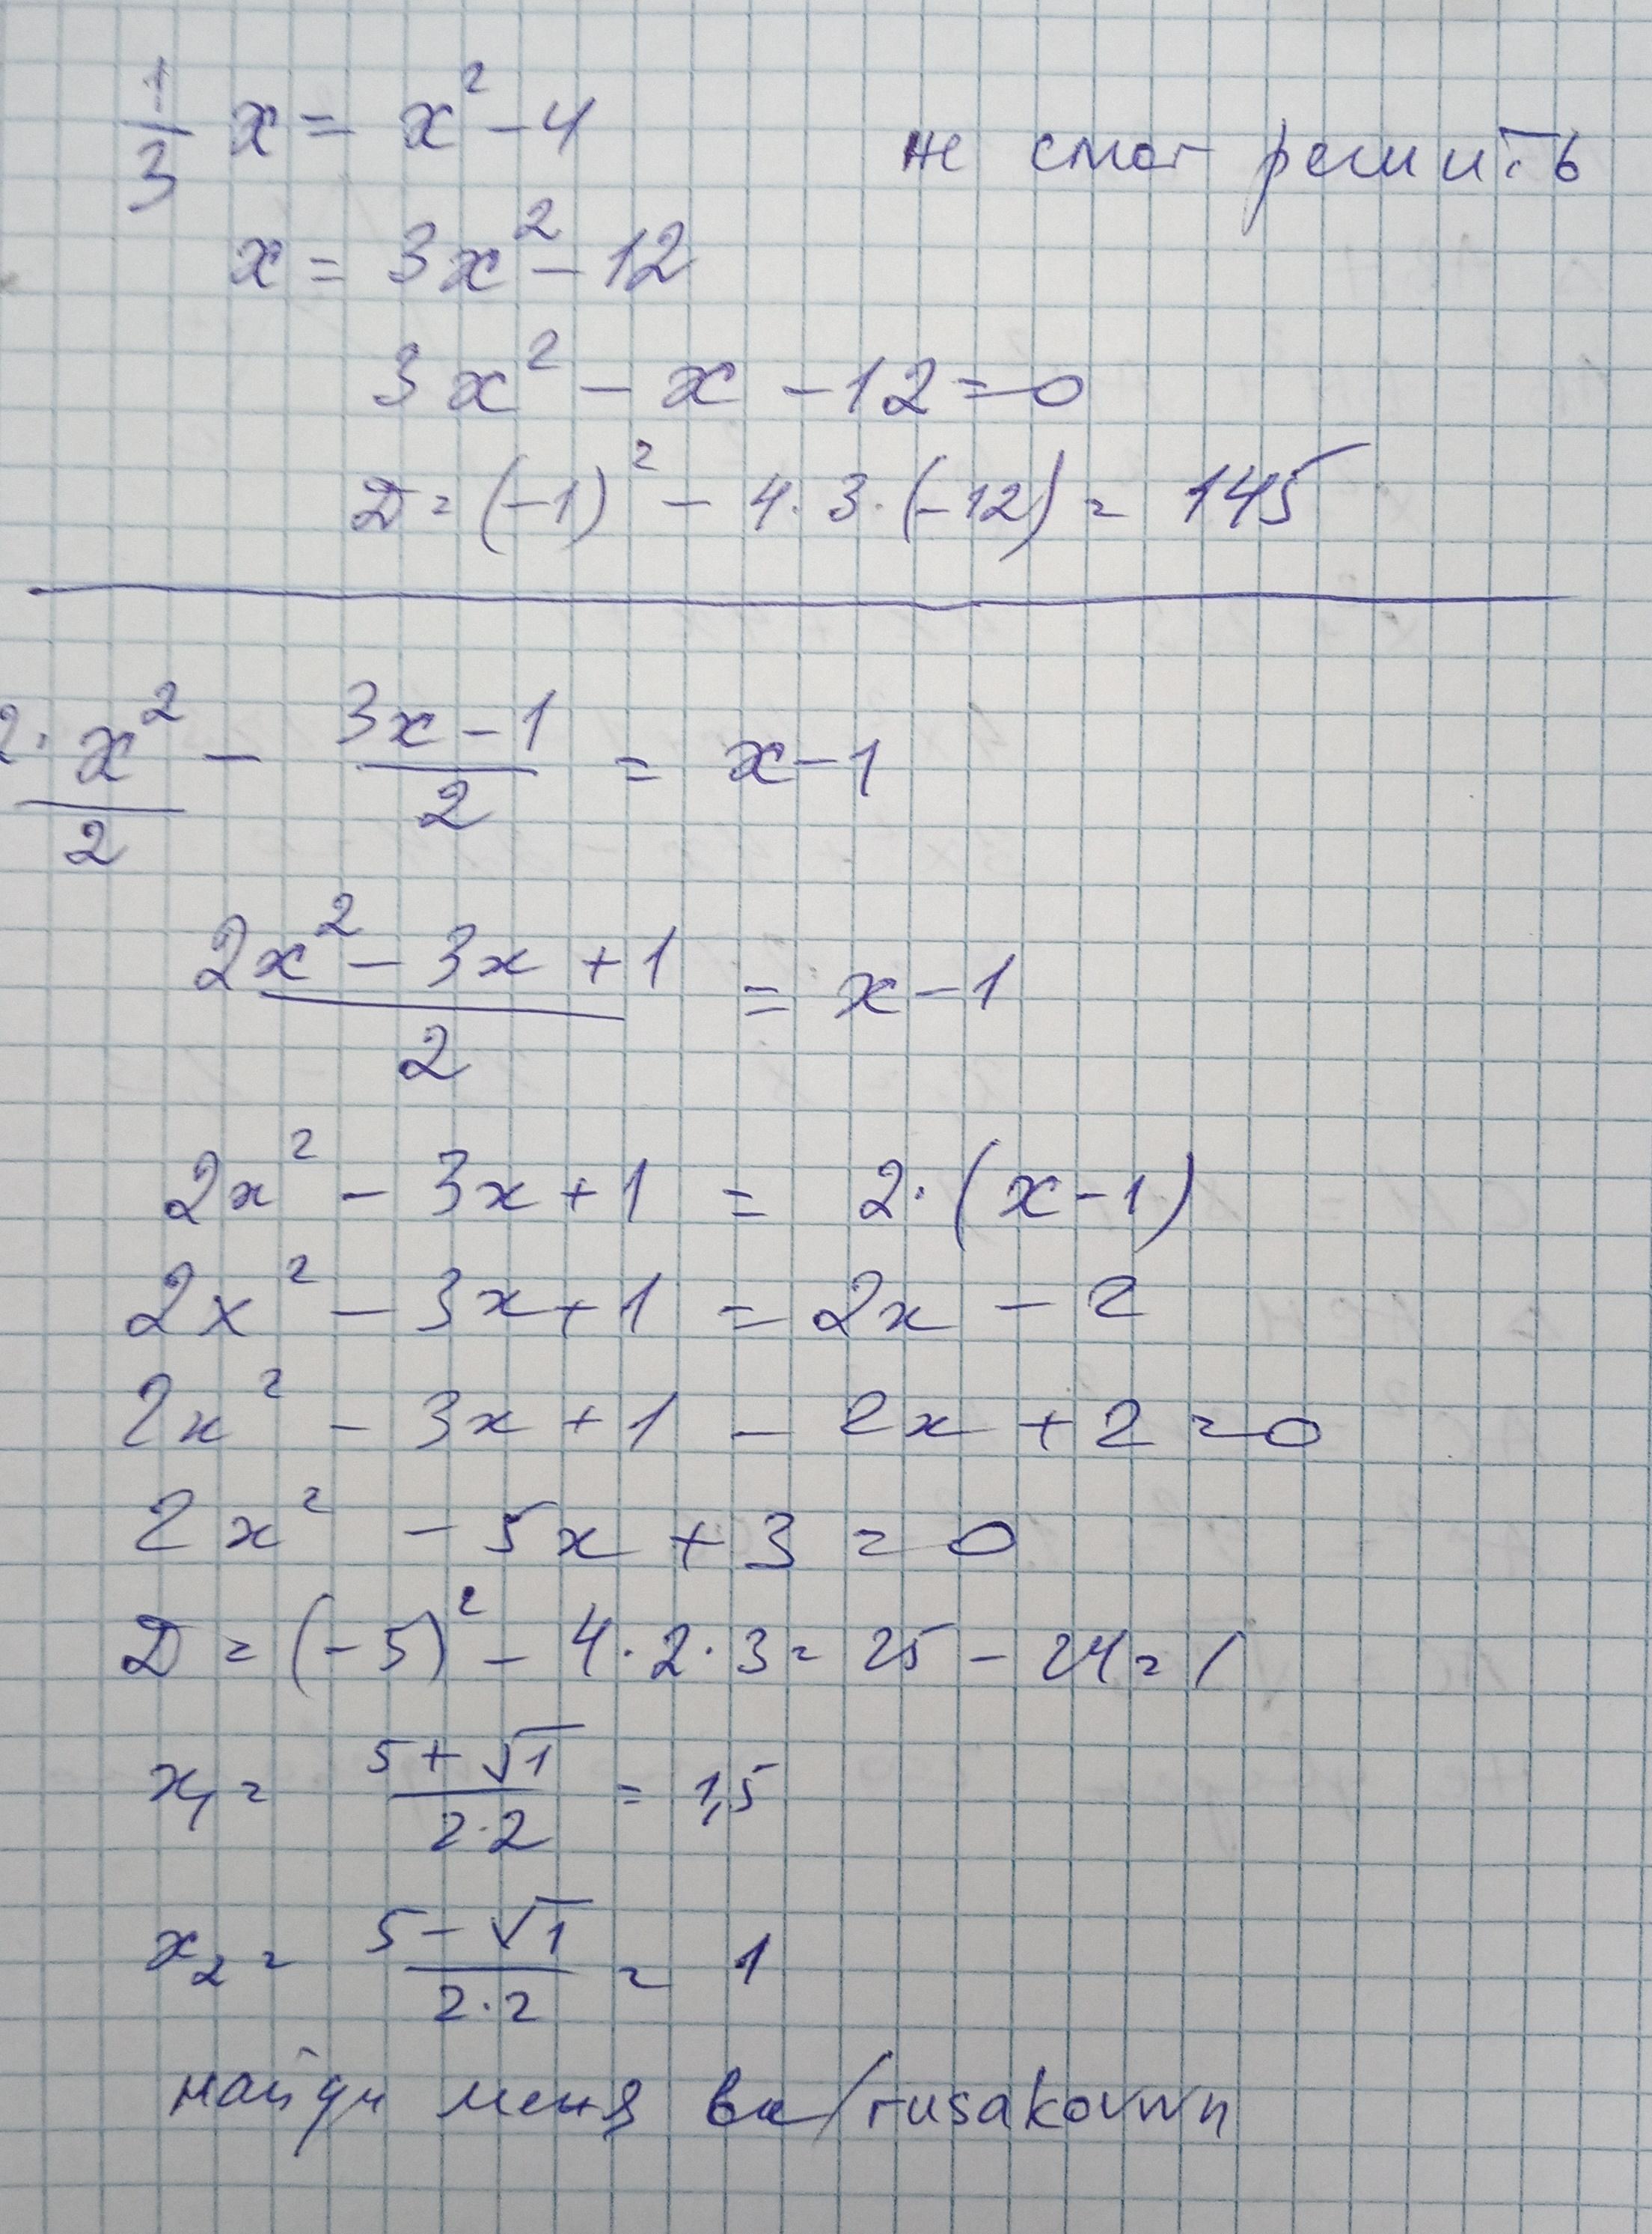 1/3 x = x² - 4
не смог решить
x = 3x² - 12
3x² - x - 12 = 0
D = (-1)² - 4·3·(-12) = 145
2·x²/2 - (3x-1)/2 = x-1
(2x² - 3x + 1)/2 = x-1
2x² - 3x + 1 = 2·(x-1)
2x² - 3x + 1 = 2x - 2
2x² - 3x + 1 - 2x + 2 = 0
2x² - 5x + 3 = 0
D = (-5)² - 4·2·3 = 25 - 24 = 1
x₁ = (5+√1)/(2·2) = 1,5
x₂ = (5-√1)/(2·2) = 1
найди меня вк/rusakovwn